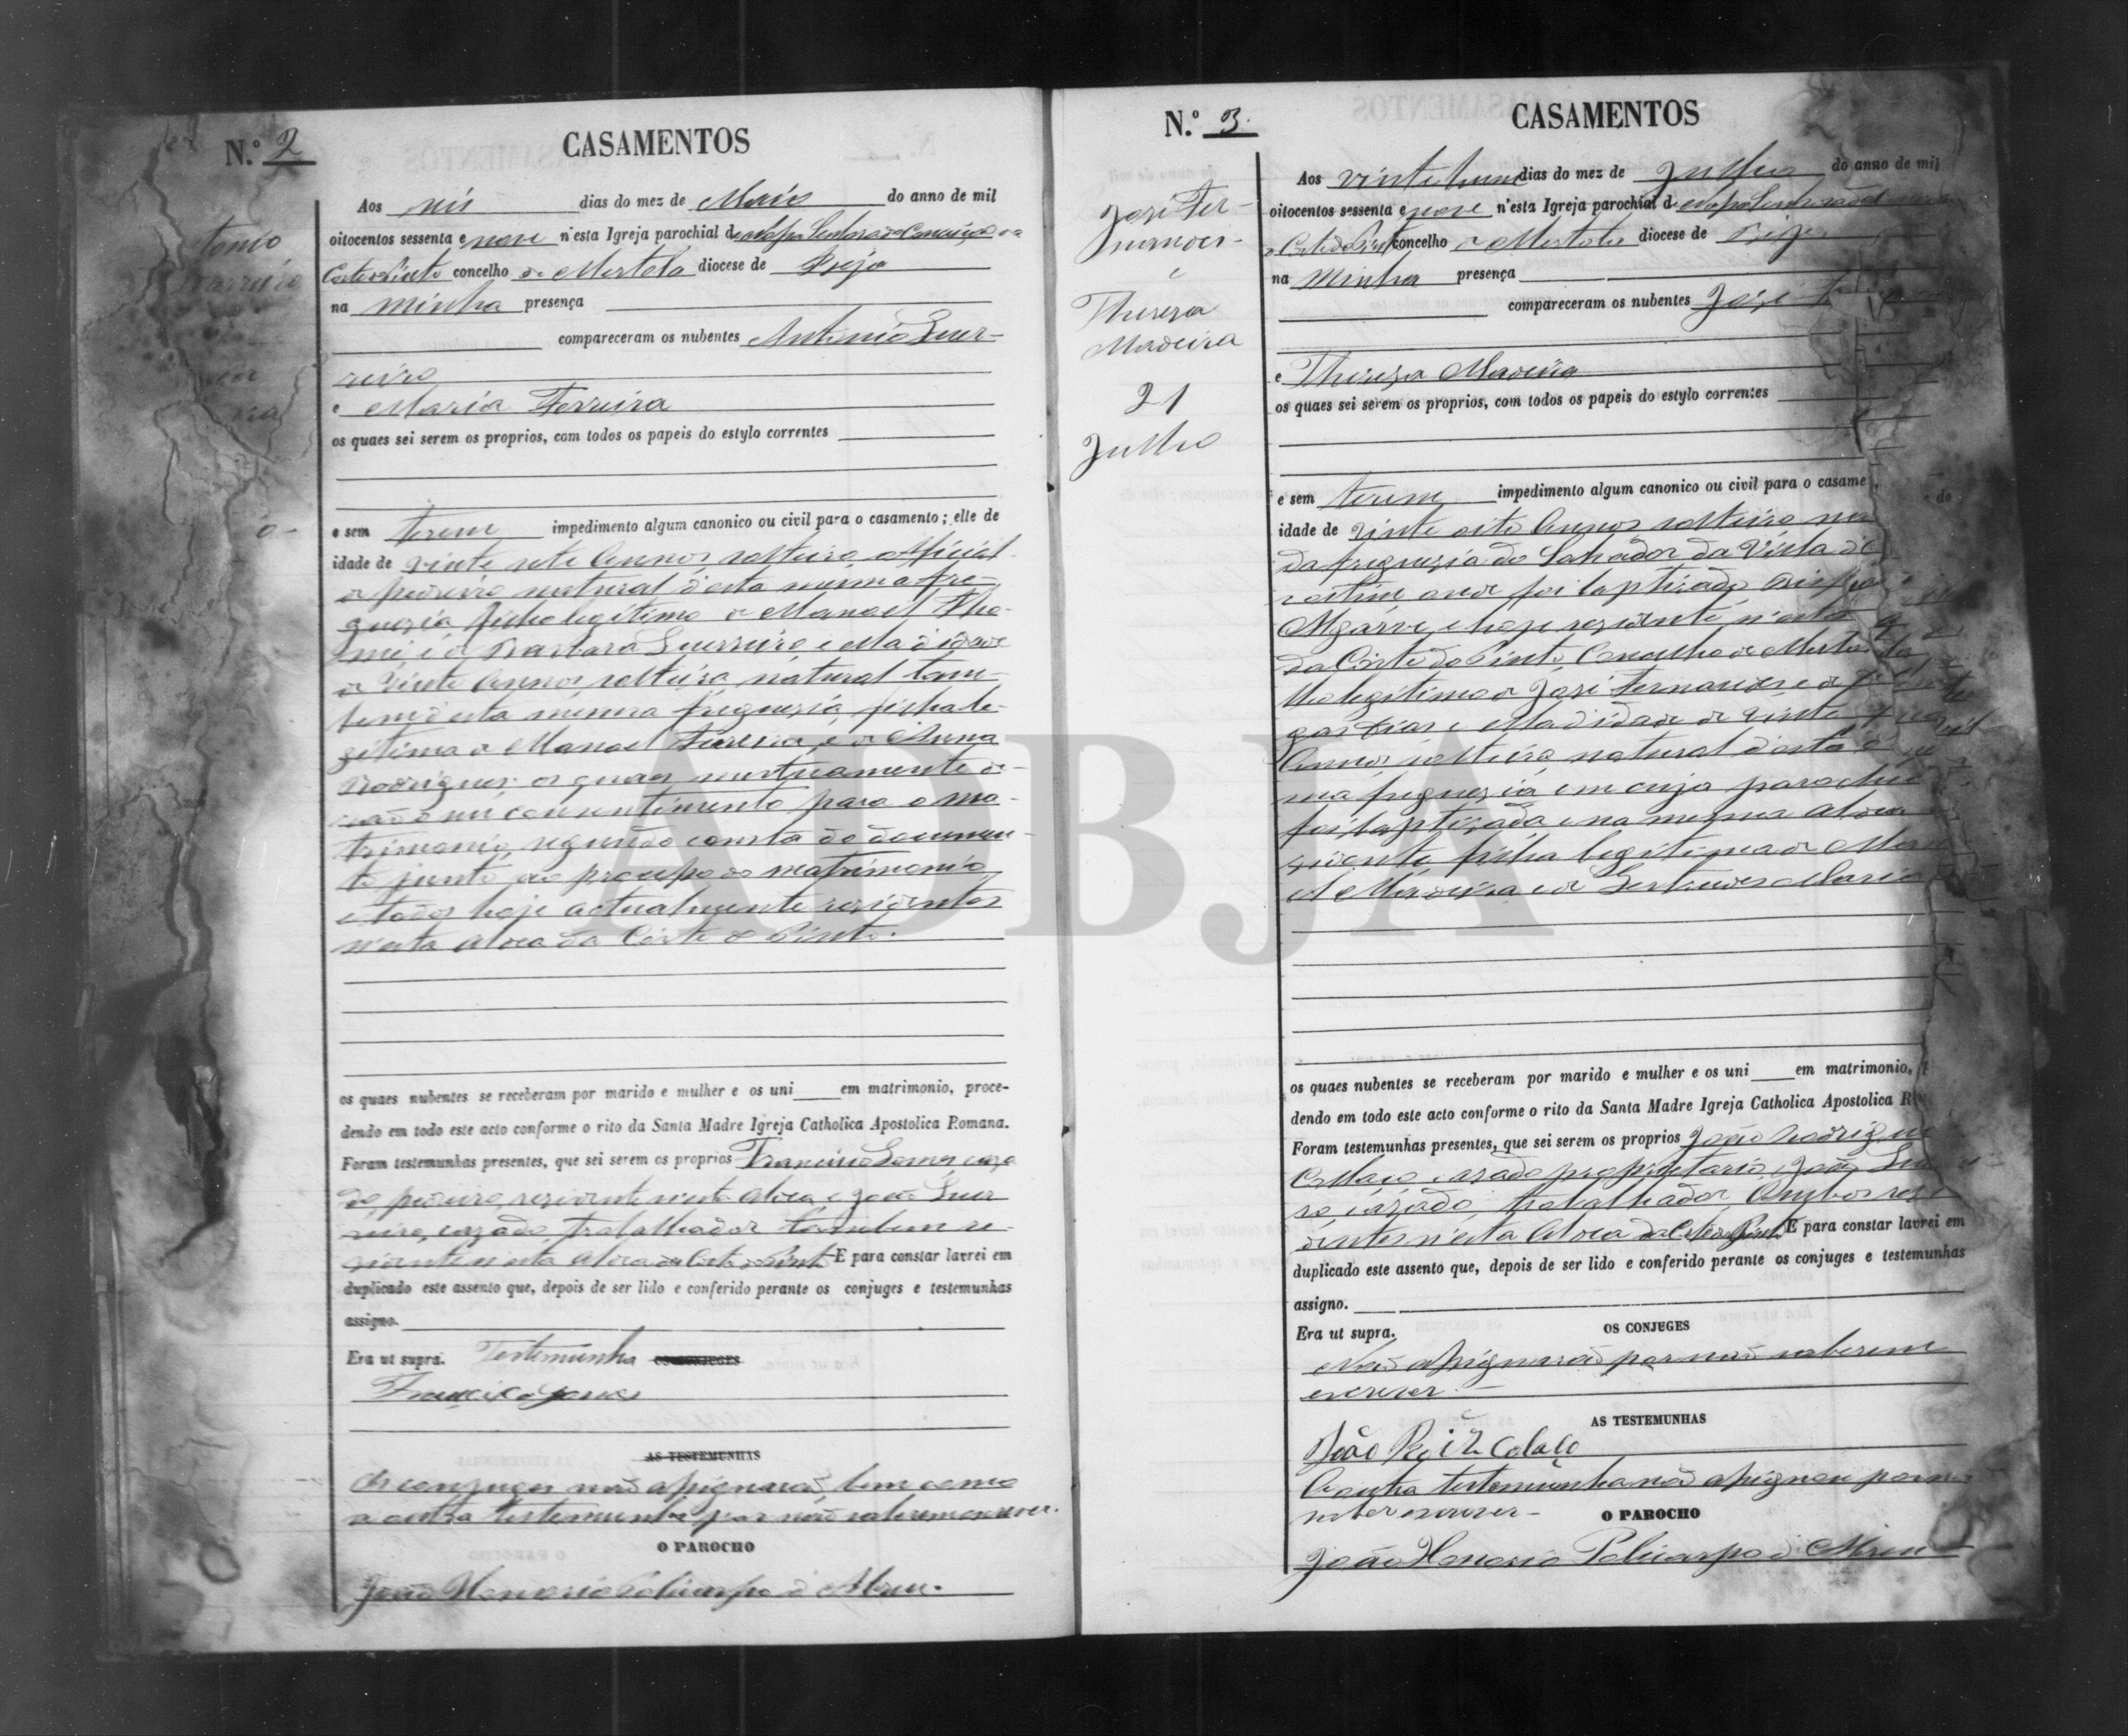 N.º 2
CASAMENTOS
Aos seis dias do mez de Maio do anno de mil
oitocentos sessenta e nove n'esta Igreja parochial de Nossa Senhora da Conceição da
Corte do Pinto concelho de Mertola diocese de Beja
na minha presença
compareceram os nubentes Antonio Guer-
reiro
e Maria Ferreira
os quaes sei serem os proprios, com todos os papeis do estylo correntes
e sem terem impedimento algum canonico ou civil para o casamento; elle de
idade de vinte sete Annos, solteiro, official
de pedreiro natural d'esta mesma fre-
guezia, filho legitimo de Manoel Tho-
mé, e de Barbara Guerreiro, e ella d'idade
de vinte Annos, solteira, natural tam-
bem d'esta mesma freguezia, filha le-
gitima de Manoel Ferreira, e de Anna
Rodrigues, os quaes mutuamente de-
rão seu consentimento para o ma-
trimonio, segundo consta do documen-
to junto ao processo do matrimonio,
e todos hoje actualmente rezidentes
n'esta Aldea da Côrte do Pinto.
os quaes nubentes se receberam por marido e mulher e os uni em matrimonio, proce-
dendo em todo este acto conforme o rito da Santa Madre Igreja Catholica Apostolica Romana.
Foram testemunhas presentes, que sei serem os proprios Francisco Gomes, caza-
do, pedreiro, rezidente n'esta Aldea, e João Guer
reiro, cazado, trabalhador tambem re-
zidente n'esta Aldea da Corte do Pinto E para constar lavrei em
duplicado este assento que, depois de ser lido e conferido perante os conjuges e testemunhas
assigno.
Era ut supra. Testemunha OS CONJUGES
Francisco Gomes
AS TESTEMUNHAS
Os conjuges não assignarão, bem como
a outra testemunha por não saberem escrever.
O PAROCHO
João Honorio Policarpo d'Abreu.
N.º 3.
CASAMENTOS
José Fer-
nandes
e
Thereza
Madeira
21
Julho
Aos vinte hum dias do mez de Julho do anno de mil
oitocentos sessenta e nove n'esta Igreja parochial de Nossa Senhora da
Corte do Pinto concelho de Mertola diocese de Beja
na minha presença
compareceram os nubentes José
e Thereza Madeira
os quaes sei serem os proprios, com todos os papeis do estylo correntes
e sem terem impedimento algum canonico ou civil para o casame de
idade de vinte oito Annos solteiro na
da freguezia do Salvador da Villa de
onde foi baptizado, Bispado
Algarve, e hoje rezidente n'esta
da Côrte do Pinto, Concelho de Mertola
lho legitimo de José Fernandes e de
Dias e ella d'idade de vinte
Annos, solteira, natural d'esta
ma freguezia em cuja parochia
foi baptizada e na mesma Aldea
zidente, filha legitima de Mano
el Madeira e de Gertrudes Maria
os quaes nubentes se receberam por marido e mulher e os uni em matrimonio,
dendo em todo este acto conforme o rito da Santa Madre Igreja Catholica Apostolica R
Foram testemunhas presentes, que sei serem os proprios João Rodrigues
Collaço, cazado, proprietario, João
cazado, trabalhador, Ambos rezi
dentes n'esta Aldea da Côrte do Pinto E para constar lavrei em
duplicado este assento que, depois de ser lido e conferido perante os conjuges e testemunhas
assigno.
Era ut supra. OS CONJUGES
Não assignarão por não saberem
escrever.
AS TESTEMUNHAS
João Roiz Colaço
A outra testemunha não assignou por não
saber escrever-
O PAROCHO
João Honorio Policarpo d'Abreu
ADBJA